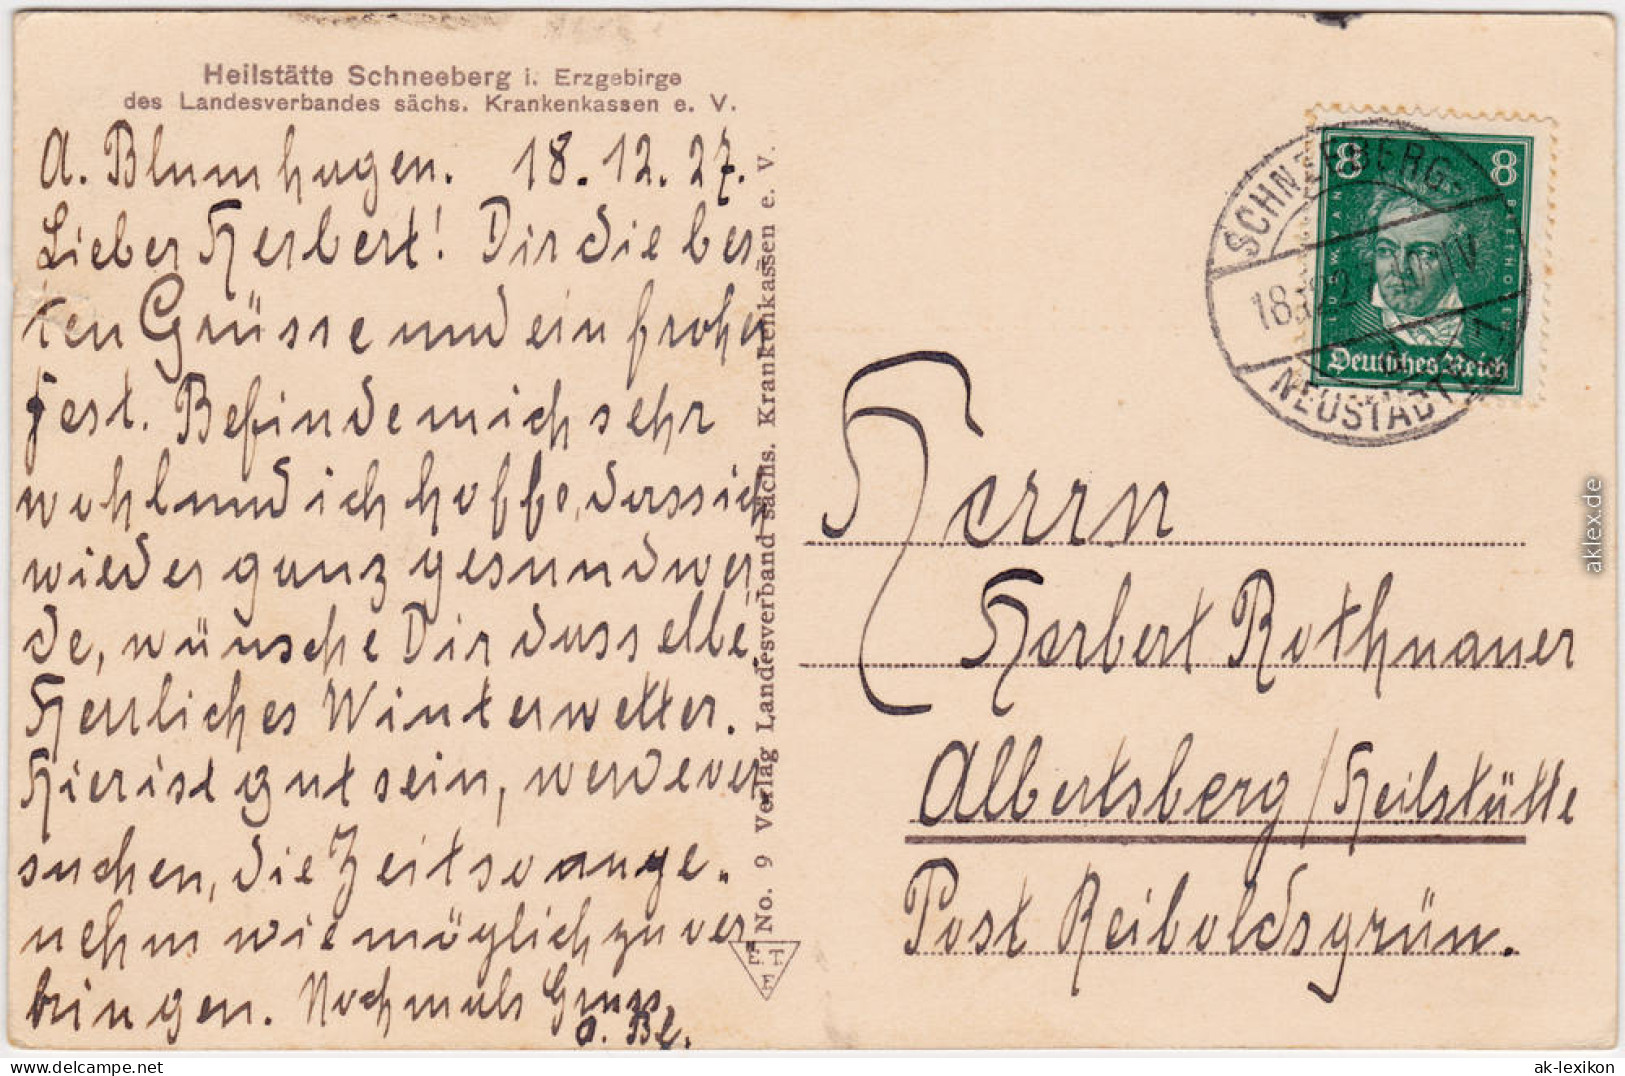 Heilstätte Schneeberg i. Erzgebirge
des Landesverbandes sächs. Krankenkassen e. V.
A. Blumhagen. 18.12.27.
Lieber Herbert! Dir die bes
ten Grüsse und ein frohes
Fest. Befinde mich sehr
wohl und ich hoffe, dass ich
wieder ganz gesund wer
de, wünsche Dir dasselbe.
Herrliches Winterwetter.
Hier ist gut sein, werde ver
suchen, die Zeit so ange„
nehm wie möglich zu ver„
bringen. Nochmals Gruss
A. Bl.
No. 9 Verlag Landesverband sächs. Krankenkassen e. V.
E. T.
E
8 8
LUDW. VAN BEETHOVEN
Deutsches Reich
SCHNEEBERG-
18.12.2 IV
NEUSTÄDTEL
Herrn
Herbert Rothnauer
Albertsberg / Heilstätte
Post Reiboldsgrün.
aklex.de
www.delcampe.net
Timler01
ak-lexikon